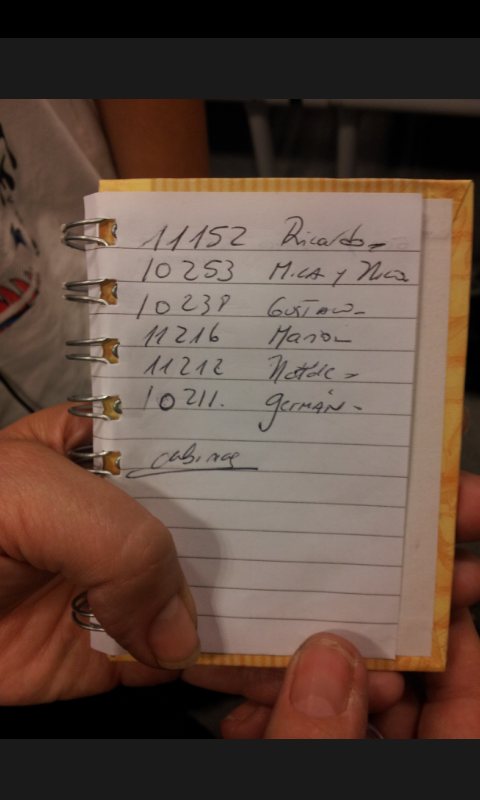 11152 Ricardo
10253 MICA y Nico
10238 GUSTAVO
11216 Mario
11212
10211. GERMÁN
cabinas